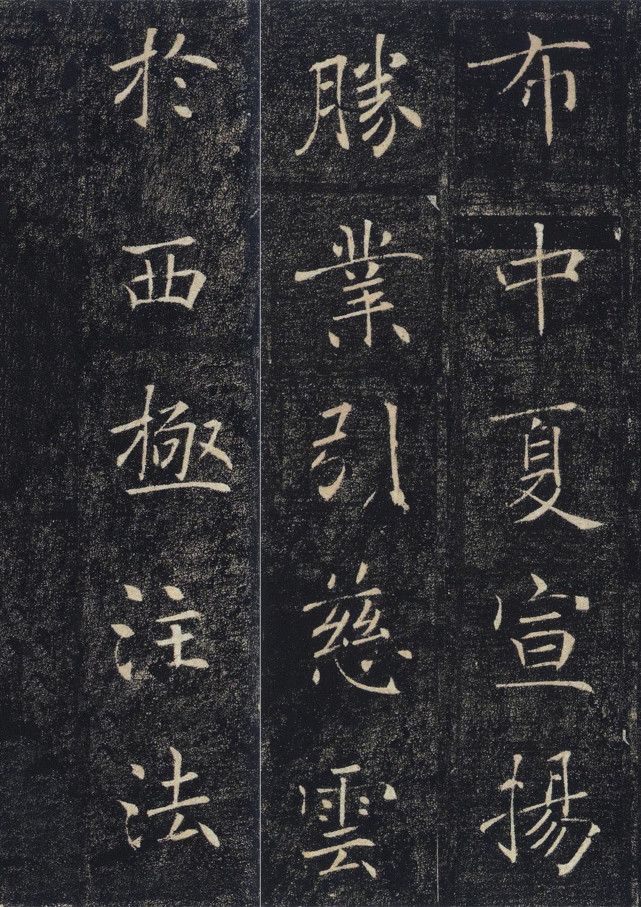 布中夏宣揚
勝業引慈雲
於西極注法